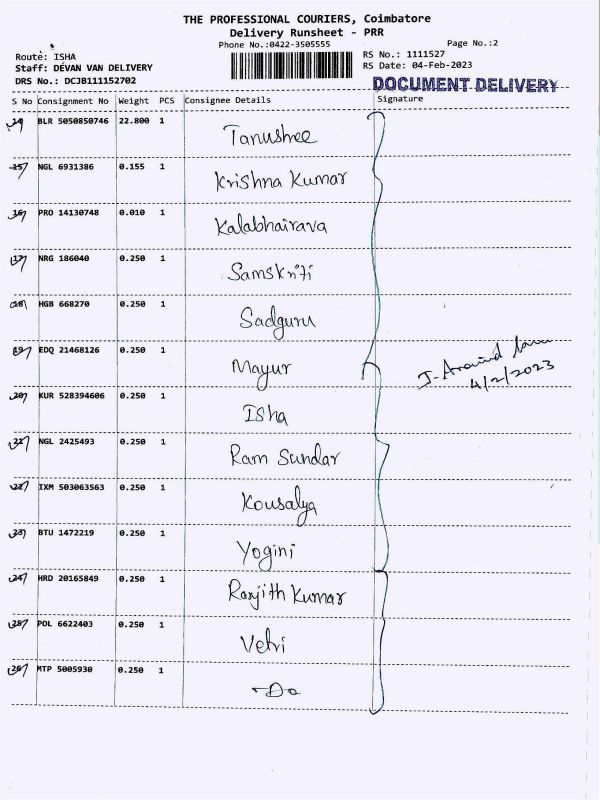 THE PROFESSIONAL COURIERS, Coimbatore
Delivery Runsheet - PRR
Phone No.:0422-3505555
Page No.:2
Route: ISHA
RS No.: 1111527
Staff: DEVAN VAN DELIVERY
RS Date: 04-Feb-2023
DRS No.: DCJB111152702
DOCUMENT DELIVERY
S No Consignment No Weight PCS Consignee Details Signature
14 BLR 5050850746 22.800 1 Tanushree
15 NGL 6931386 0.155 1 Krishna Kumar
16 PRO 14130748 0.010 1 Kalabhairava
17 NRG 186040 0.250 1 Samskriti
18 HGB 668270 0.250 1 Sadguru
19 EDQ 21468126 0.250 1 Mayur
J. Aravind
4/2/2023
20 KUR 528394606 0.250 1 Isha
21 NGL 2425493 0.250 1 Ram Sundar
22 IXM 503063563 0.250 1 Kousalya
23 BTU 1472219 0.250 1 Yogini
24 HRD 20165849 0.250 1 Ranjith Kumar
25 POL 6622403 0.250 1 Vetri
26 MTP 5005930 0.250 1 -Do